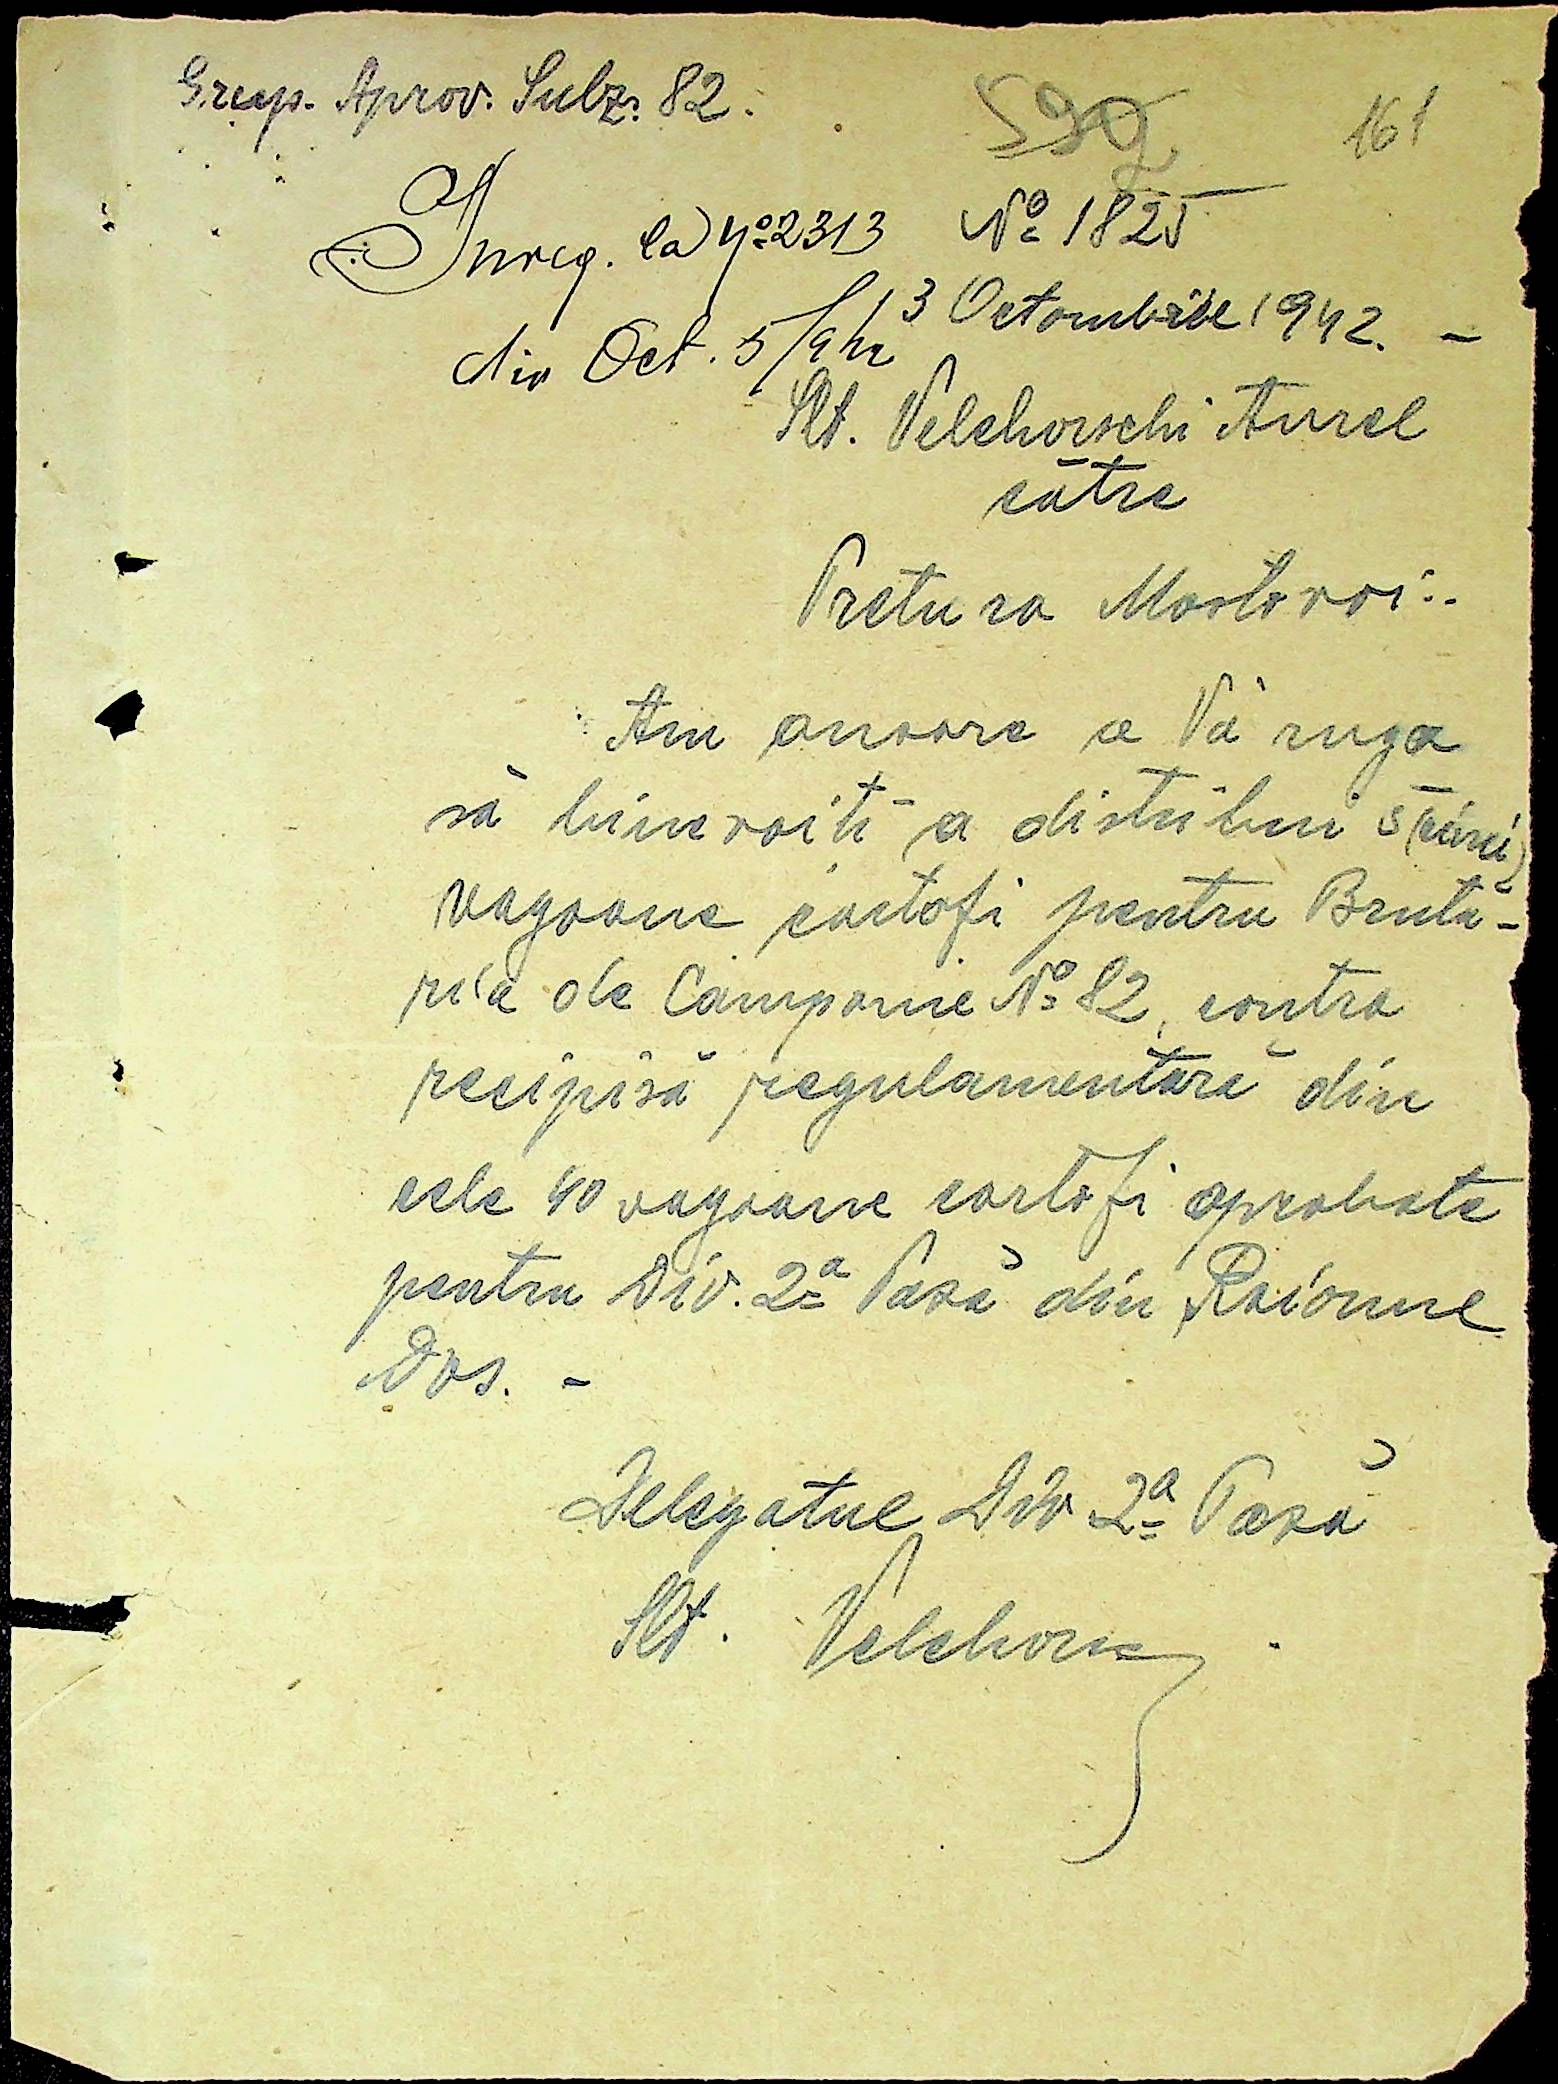 Grup. Aprov. Subz. 82.
161
Nº 1825
Inreg. la Nº 2313
din Oct. 5/942
3 Octombrie 1942. -
Slt. Velehorschi Aurel
către
Pretura Mostovoi.
Am onoare a Vă ruga
să binevoiți a distribui 5 (cinci)
vagoane cartofi pentru Brută-
ria de Campanie Nº 82, contra
recipisă regulamentară din
cele 40 vagoane cartofi aprobate
pentru Div. 2ª Pază din Raionul
Dos. -
Delegatul Div 2ª Pază
Slt. Velehors